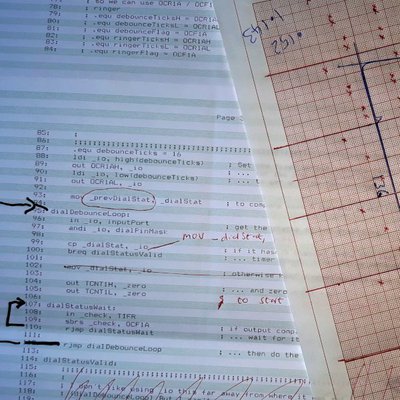 ; so we can use OCR1A / OCF1A
78: ; ringer
79: ; .equ debounceTicksH = OCR1AH
80: ; .equ debounceTicksL = OCR1AL
81: ; .equ debounceFlag = OCF1A
82: ; .equ ringerTicksH = OCR1AH
83: ; .equ ringerTicksL = OCR1AL
84: ; .equ ringerFlag = OCF1A
Page
85: ;
86:
87: .equ debounceTicks = 16
88: ldi _io, high(debounceTicks) ; Set
89: out OCR1AH, _io ; ...
90: ldi _io, low(debounceTicks) ; ...
91: out OCR1AL, _io ; ...
92:
93: mov _prevDialStat, _dialStat ; to comp
94:
95: dialDebounceLoop:
96: in _io, inputPort ; get the
97: andi _io, dialPinMask
mov _dialStat,
98:
99: cp _dialStat, _io ; if it has
100: breq dialStatusValid ; ... timer
101:
102: mov _dialStat, _io ; otherwise
103:
104: out TCNT1H, _zero ; ... and zero
105: out TCNT1L, _zero ; to start
106:
107: dialStatusWait:
108: in _check, TIFR
109: sbrs _check, OCF1A ; if output comp
110: rjmp dialStatusWait ; ... wait for it
111:
112: rjmp dialDebounceLoop ; ... then do the
113:
114: dialStatusValid:
115:
116:
117: